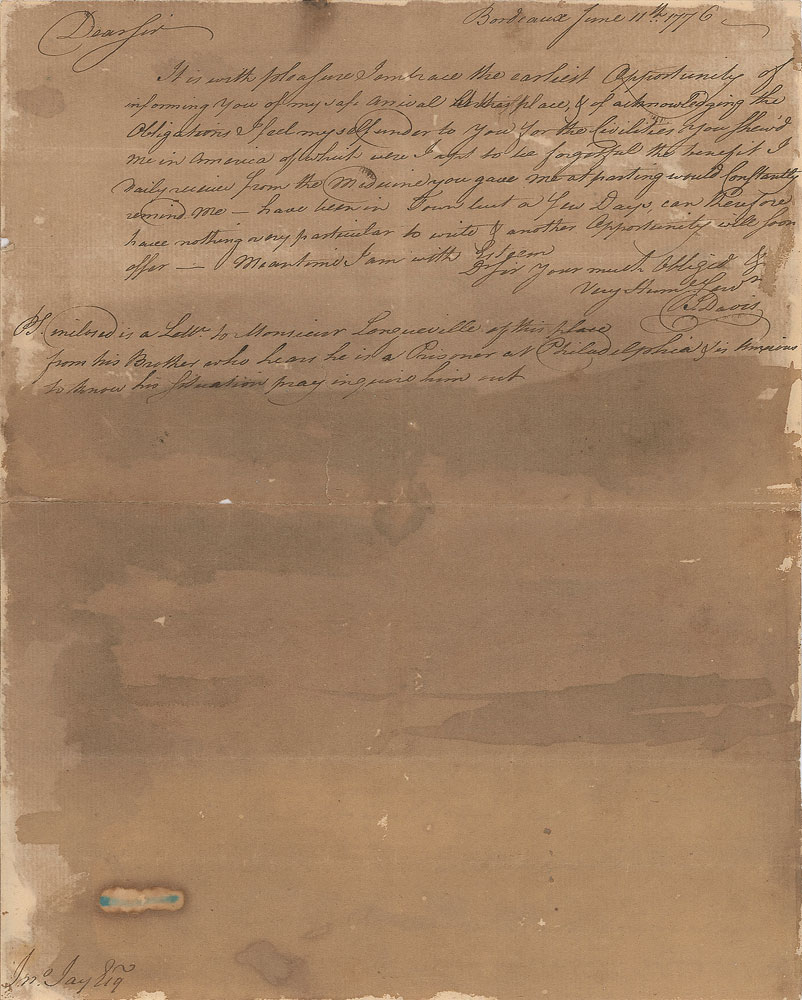 Bordeaux June 11th. 1776
Dear Sir
It is with pleasure I embrace the earliest Opportunity of
informing You of my safe arrival at this place, & of acknowledging the
Obligations I feel myself under to You for the Civilities You shew'd
me in America of which were I apt to be forgetful the benefit I
daily receive from the Medicine you gave me at parting would Constantly
remind me — have been in Town but a few Days can therefore
have nothing very particular to write & another Opportunity will soon
offer — Meantime I am with Esteem
Dr Sir Your much Obliged &
Very Hum
Davis
PS. enclosed is a Lettr. to Monsieur Longueville of this place
from his Brother who hears he is a Prisoner at Philadelphia & is Anxious
to know his Situation, pray inquire him out
Jno. Jay Esqr